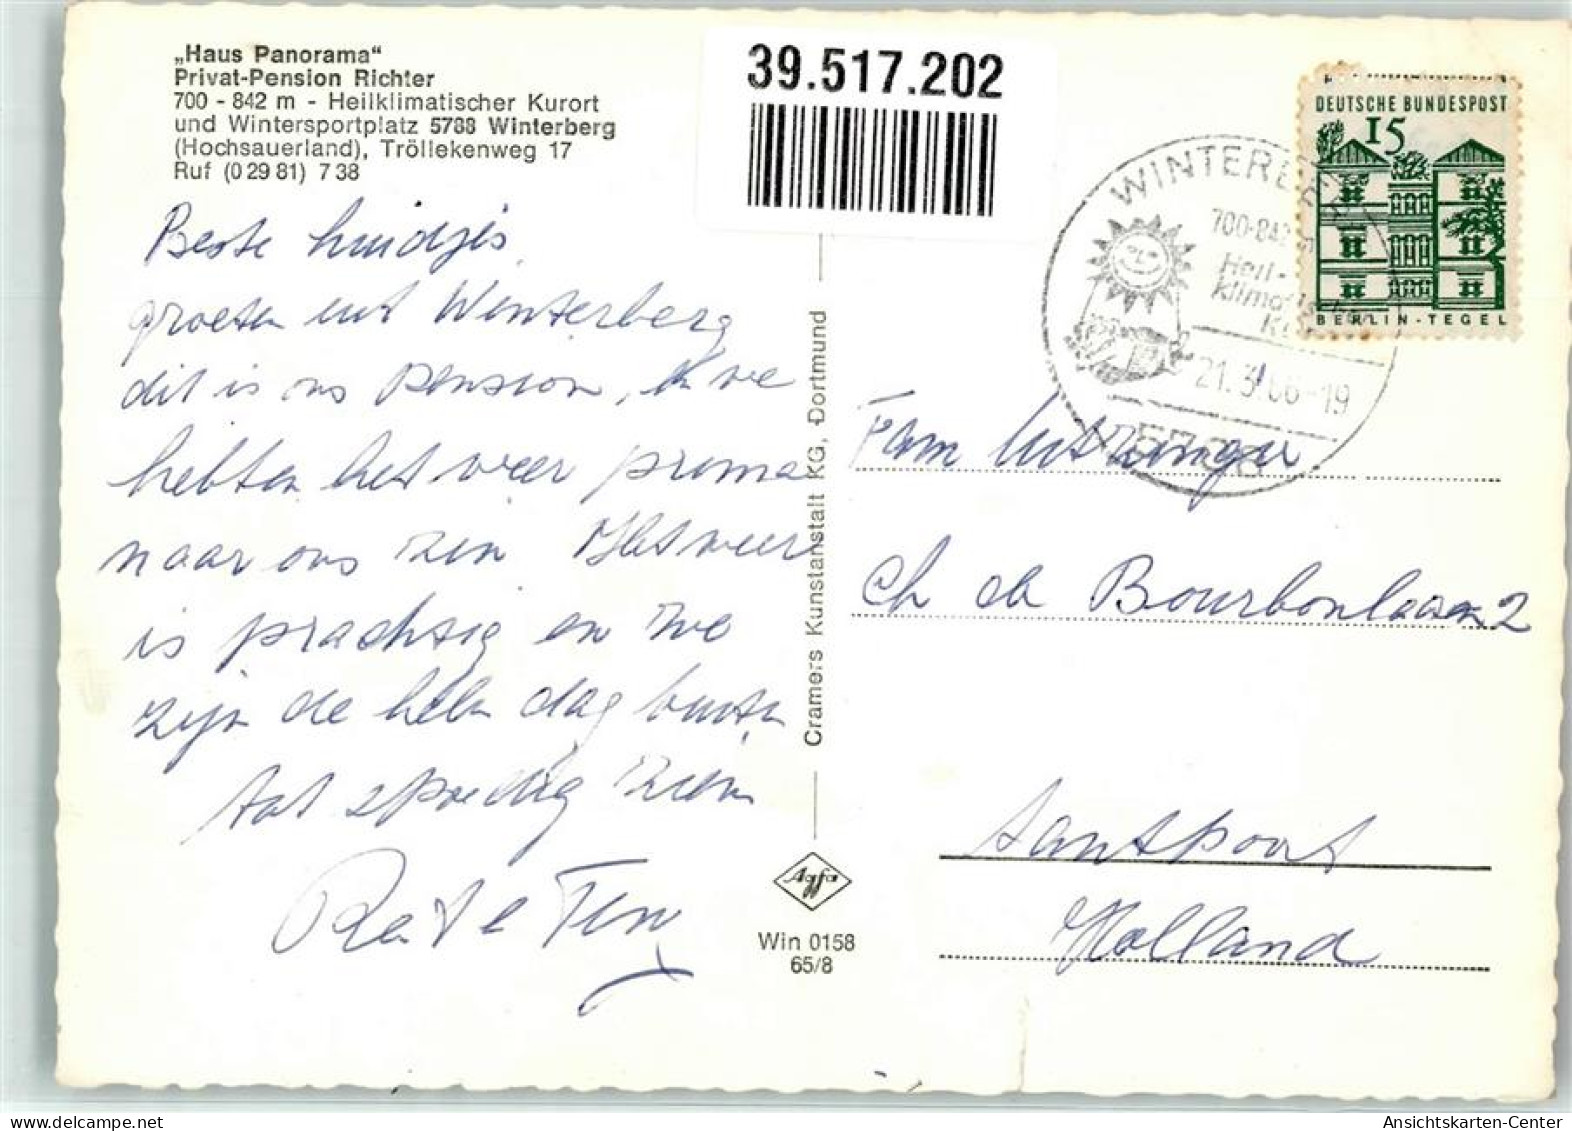 „Haus Panorama“
Privat-Pension Richter
700 - 842 m - Heilklimatischer Kurort
und Wintersportplatz 5788 Winterberg
(Hochsauerland), Tröllekenweg 17
Ruf (0 29 81) 7 38
39.517.202
DEUTSCHE BUNDESPOST
15
BERLIN-TEGEL
WINTERBERG
700-842
Heil-
klimatischer
21.3.66-19
5788
Beste
groeten uit Winterberg
dit is ons pension, en we
hebben het weer prima
naar ons zin Het weer
is prachtig en we
zijn de hele dag buiten
tot spoedig ziens
Cramers Kunstanstalt KG, Dortmund
Agfa
Win 0158
65/8
Fam
Ch de Bourbonlaan 2
Santpoort
Holland
Ansichtskarten-Center